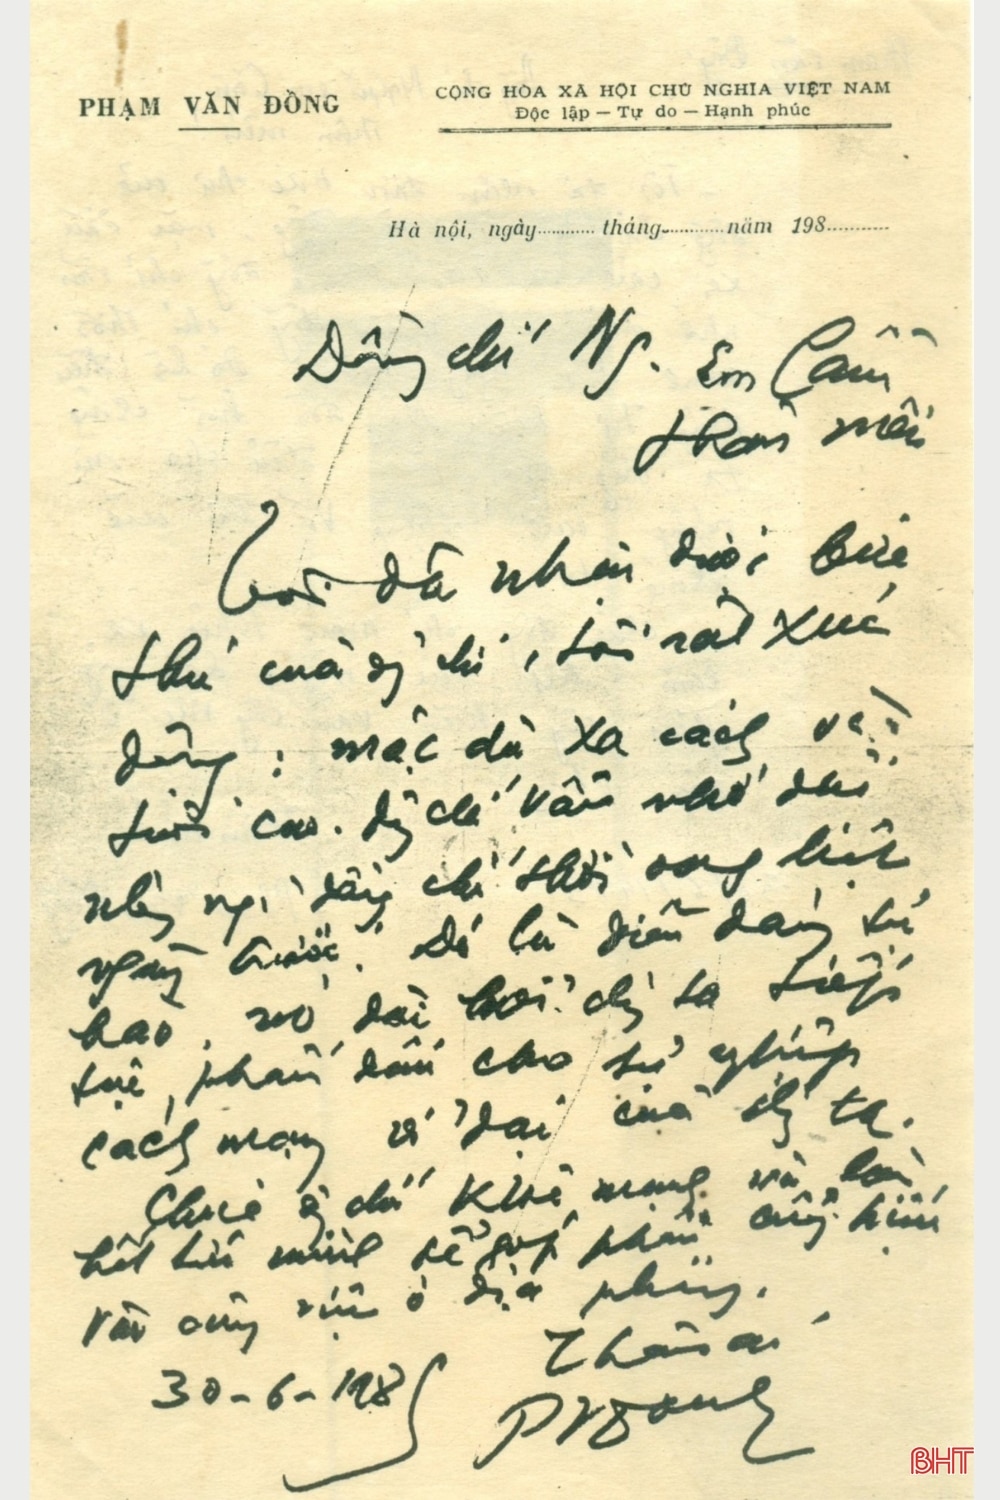 PHẠM VĂN ĐỒNG
CỘNG HÒA XÃ HỘI CHỦ NGHĨA VIỆT NAM
Độc lập — Tự do — Hạnh phúc
Hà nội, ngày............ tháng............năm 198............
Đồng chí Ng. Em Cần
thân mến
Tôi đã nhận được bức
thư của đ/ chí, tôi rất xúc
động: mặc dù xa cách và
tuổi cao. đ/ chí vẫn nhớ đến
những ng. đồng chí thời oang liệt
ngày trước. Đó là điều đáng tự
hào, nó đòi hỏi chg ta tiếp
tục phấn đấu cho sự nghiệp
cách mạng vĩ đại của chg ta.
Chúc đ/ chí khỏe mạnh và làm
hết sức mình để góp phần cống hiến
vào công việc ở địa phương.
Thân ái
30-6-198
PVĐong
BHT